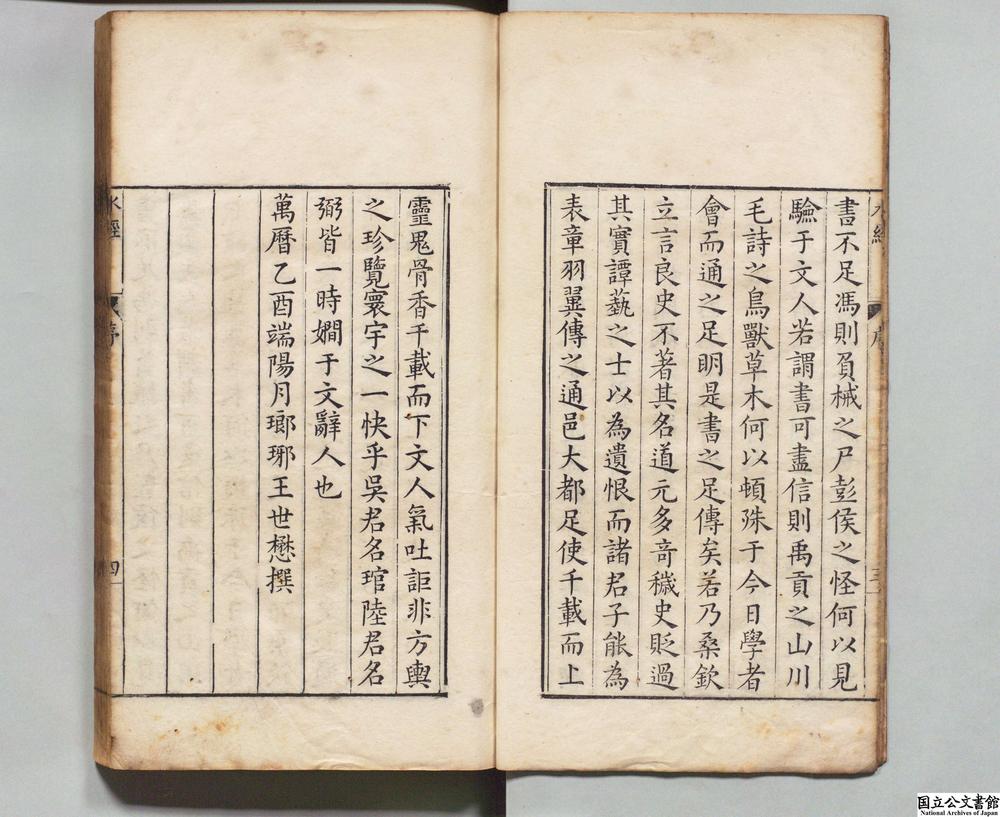 書不足馮則負械之尸彭侯之怪何以見
驗于文人若謂書可盡信則禹貢之山川
毛詩之鳥獸草木何以頓殊于今日學者
會而通之足明是書之足傳矣若乃桑欽
立言良史不著其名道元多竒穢史貶過
其實譚藝之士以為遺恨而諸君子能為
表章羽翼傳之通邑大都足使千載而上
靈鬼骨香千載而下文人氣吐詎非方輿
之珍覽寰宇之一快乎吳君名琯陸君名
弼皆一時嫺于文辭人也
萬曆乙酉端陽月瑯琊王世懋撰
水經
序
四
国立公文書館
National Archives of Japan